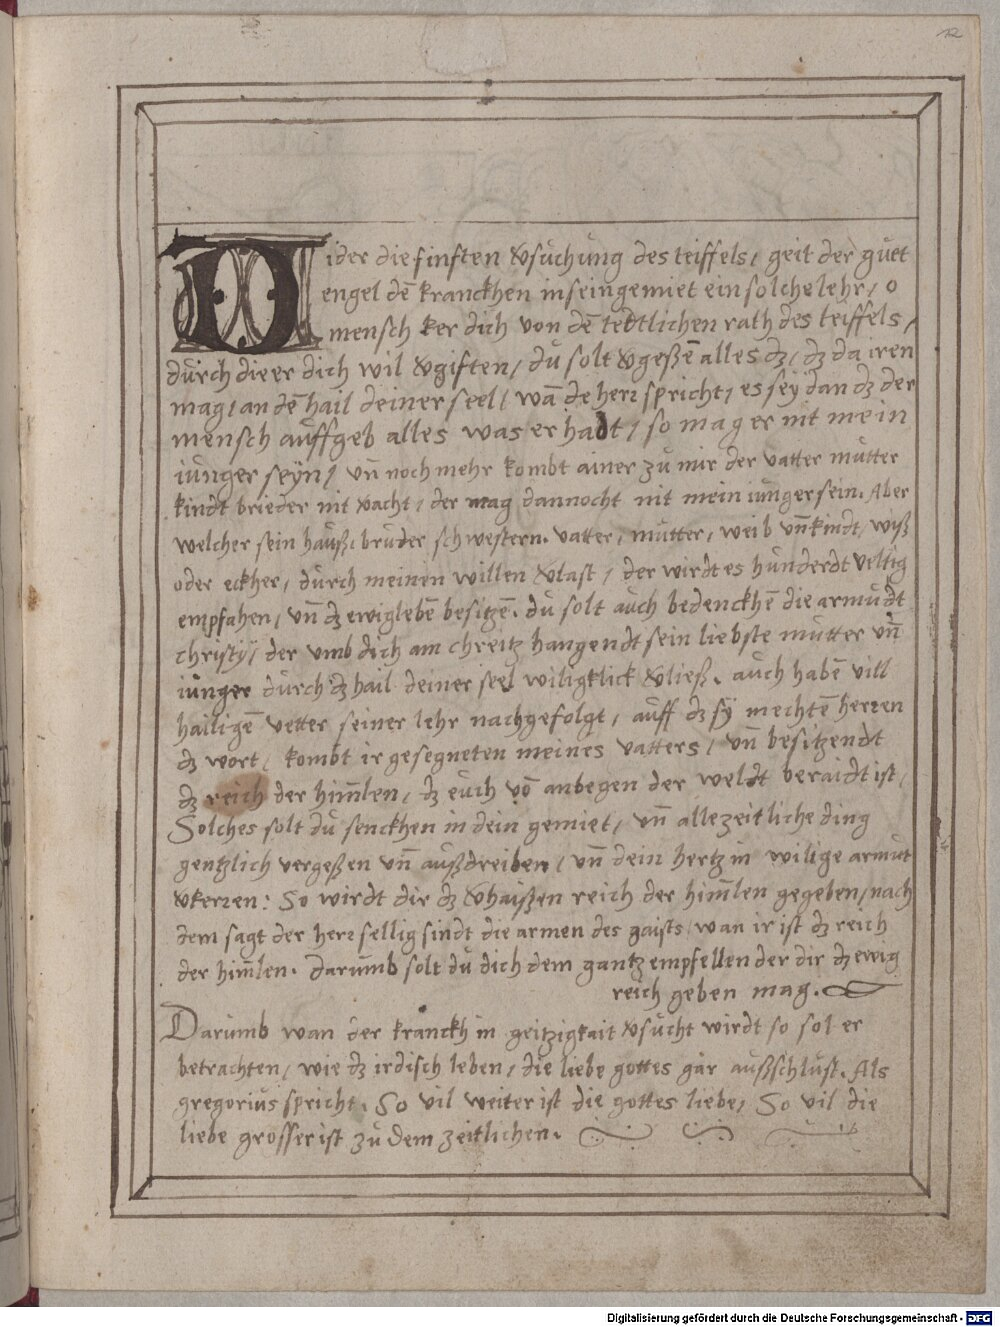 12
Wider die finften vsuchung des teiffels, geit der guet
engel dē kranckhen in sein gemiet ein solche lehr, o
mensch ker dich von dē tedtlichen rath des teiffels,
durch die er dich wil vgiften, du solt vgeßē alles dz, dz da iren
mag, an dē hail deiner seel, wā de herr spricht, es sey dan dz der
mensch auffgeb alles was er hadt, so mag er nit mein
iunger seÿn, vn̄ noch mehr kombt ainer zu mir der vatter mutter
kindt brieder nit vacht, der mag dannocht nit mein iunger sein. Aber
welcher sein hauß, bruder schwestern. vatter, mutter, weib vn̄ kindt, wiß
oder eckher, durch meinen willen vlast, der wirdt es hunderdt veltig
empfahen, vn̄ dz ewig lebē besitzē. du solt auch bedenckhē die armudt
christÿ, der vmb dich am chreitz hangendt sein liebste mutter vn̄
iunger durch dz hail deiner seel wiligklick vließ. auch habē vill
hailigē vetter seiner lehr nachgefolgt, auff dz sÿ mechtē herren
dz wort, kombt ir gesegneten meines vatters, vn̄ besitzendt
dz reich der him̄len, dz euch vō anbegen der weldt beraidt ist,
Solches solt du senckhen in dein gemiet, vn̄ alle zeitliche ding
gentzlich vergeßen vn̄ außdreiben, vn̄ dein hertz in wilige armut
vkerren: So wirdt dir dz vhaißen reich der him̄len gegeben, nach
dem sagt der herr sellig sindt die armen des gaists, wan ir ist dz reich
der him̄len. darumb solt du dich dem gantz empfellen der dir dz ewig
reich geben mag.
Darumb wan der kranckh in geitzigkait vsucht wirdt so sol er
betrachten, wie dz irdisch leben, die liebe gottes gar außschlust. Als
gregorius spricht. So vil weiter ist die gottes liebe, So vil die
liebe grosser ist zu dem zeitlichen.
Digitalisierung gefördert durch die Deutsche Forschungsgemeinschaft - DFG